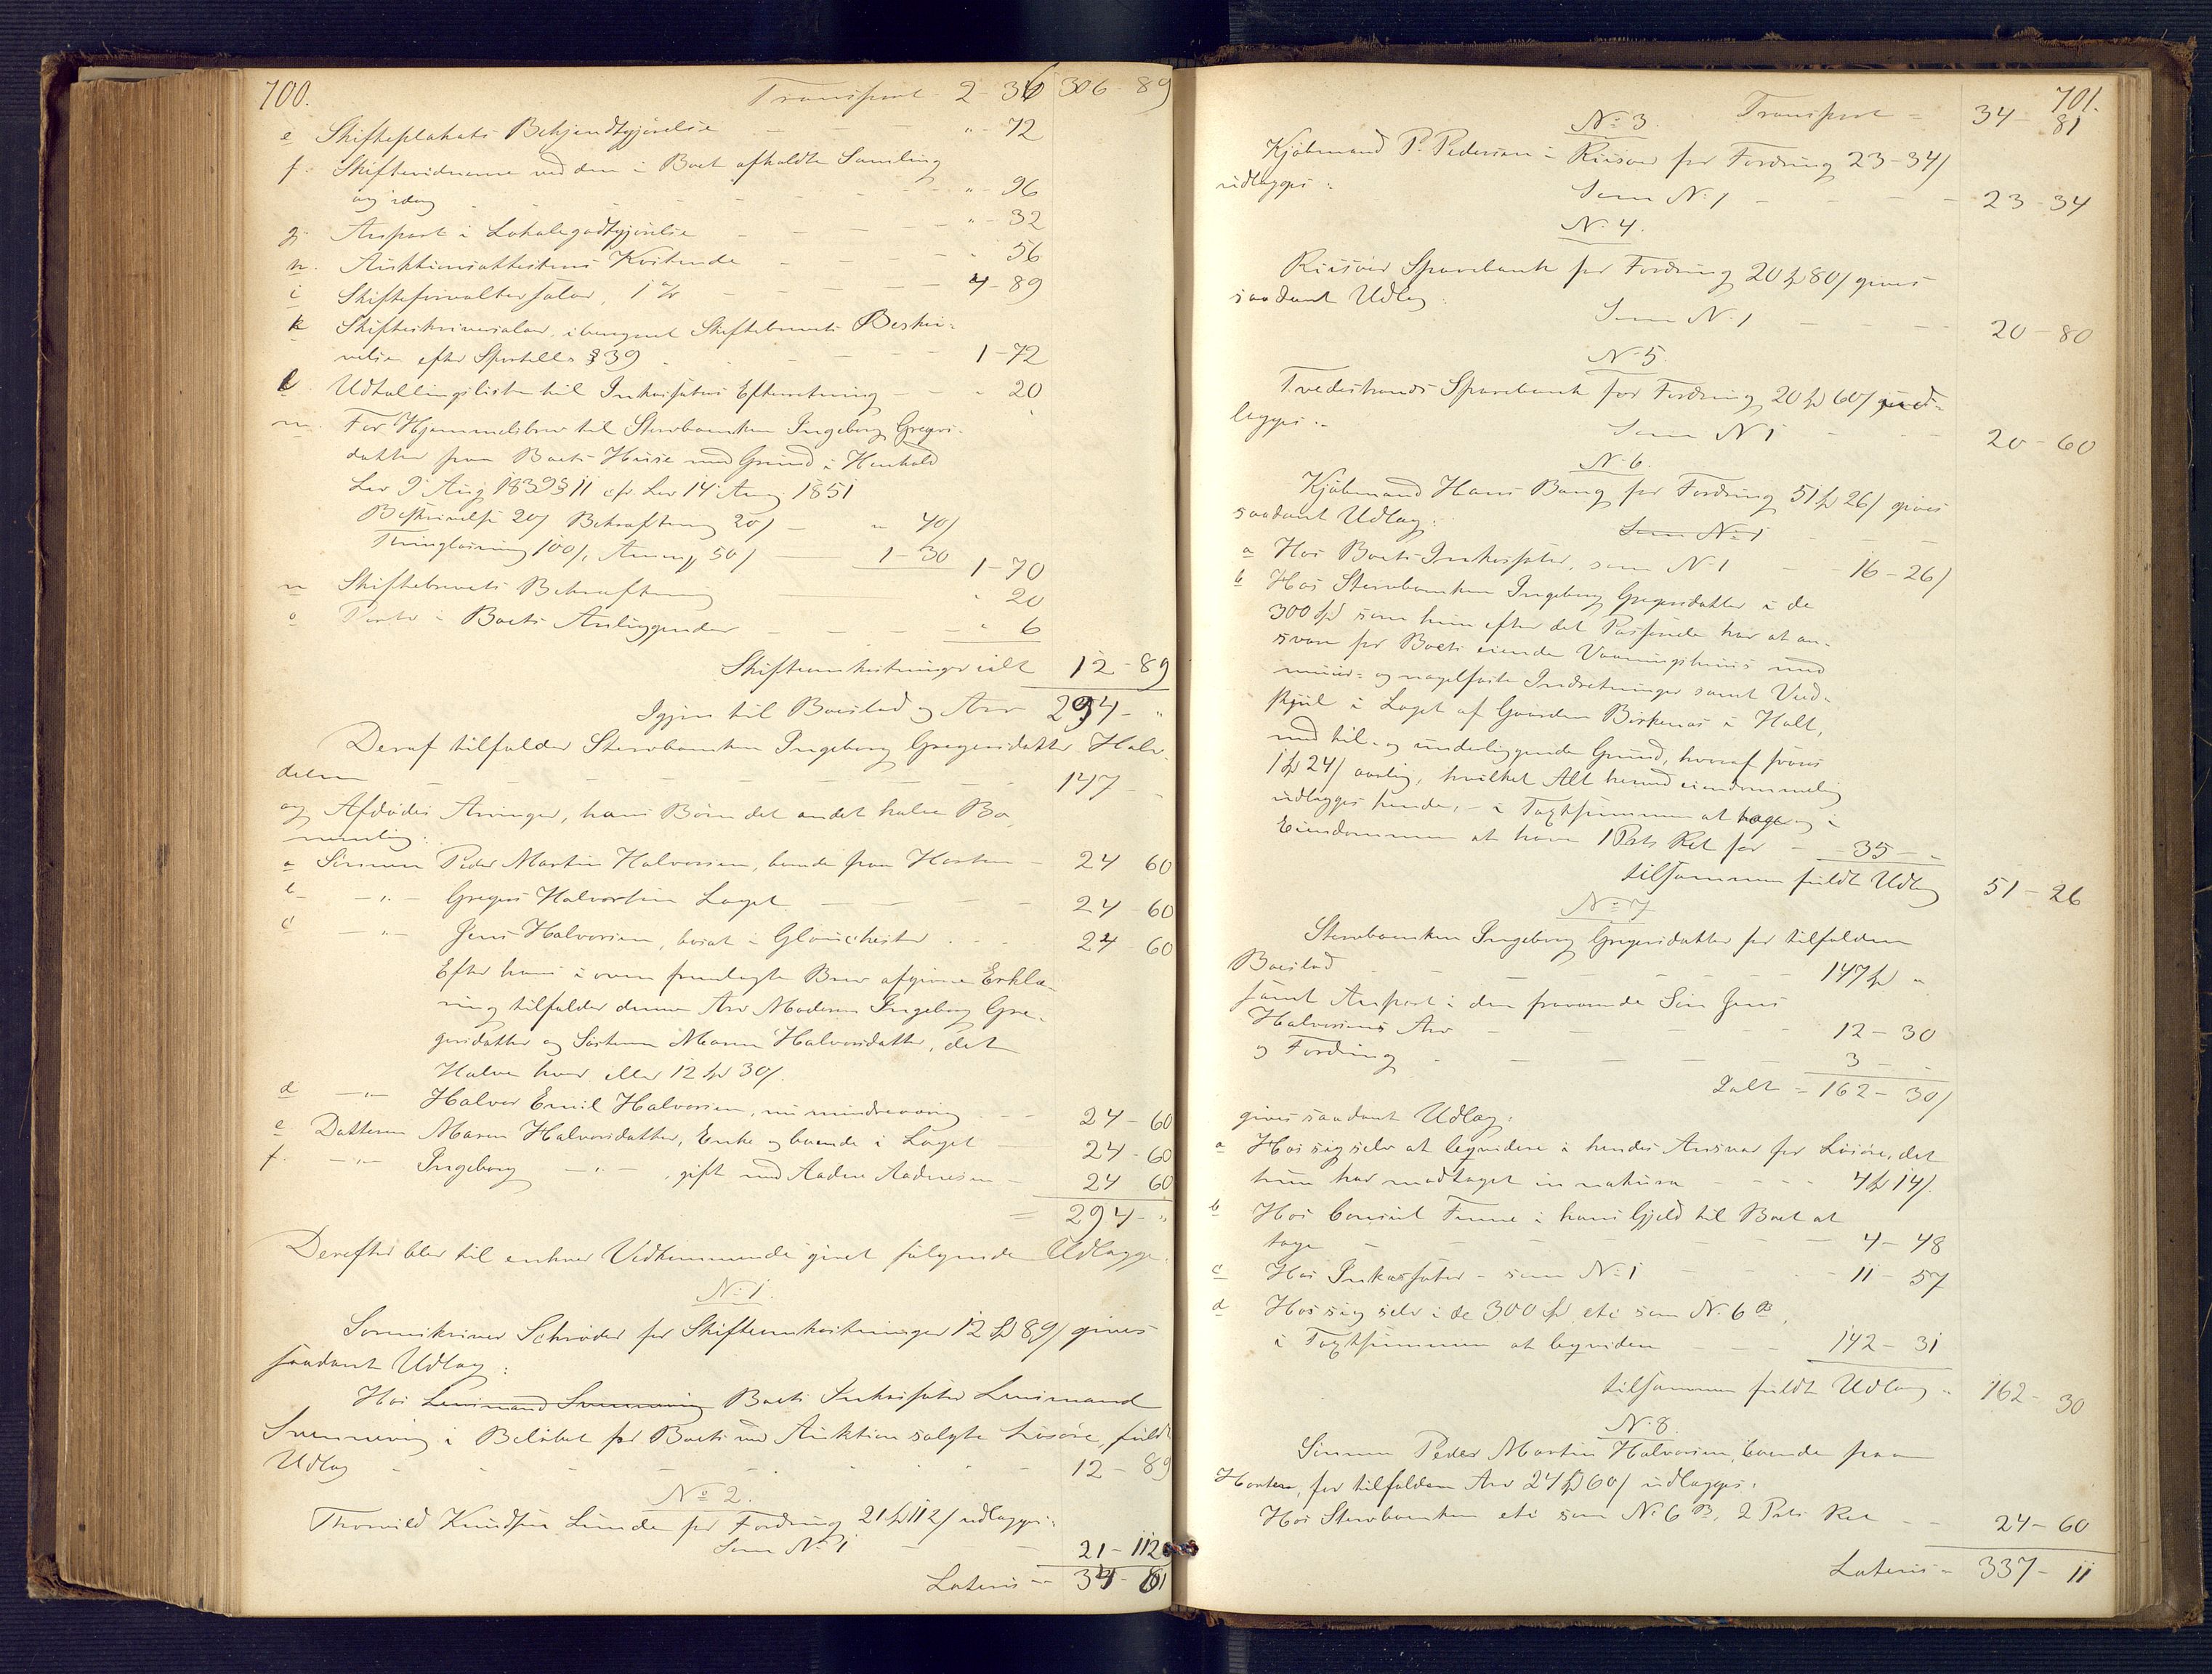 700.
Transport 2-36 306-89
e Skifteplakats Bekjendtgjørelse - - - " - 72
f. Skiftevidnerne ved den i Boet afholdte Samling
og idag - - - " - 96
g. Anpart i Lokalegodtgjørelse - - - " - 32
h. Auktionsattestens Kostende - - - " 56
i Skifteforvaltersalar, 1 % - - - 4-89
k Skifteskriversalar, iberegnet Skiftebrevets Beskri-
velse efter Sportell. § 39 - - - 1-72
l. Udtallingsliste til Inkassators Efterretning - - " 20
m. For Hjemmelsbrev til Stervboenken Ingeborg Gregers-
datter paa Boets Huse med Grund i Henhold
Lov 9 Aug 1839 § 11 cfr Lov 14 Aug 1851
Beskrivelse 20/ Bekræftning 20/ - " 40/
Thinglæsning 100/, Anmg 50/ - 1-30 1-70
n Skiftebrevets Bekræftning " 20
o Porto i Boets Anliggender - - - " 6
Skifteomkostninger ialt 12-89
Igjen til Boeslod og Arv 294- "
Deraf tilfalder Stervboenken Ingeborg Gregersdatter Halv-
delen - - - 147 - -
og Afdødes Arvinger, hans Børn det andet halve Bo
nemlig:
a Sønnen Peder Martin Halvorsen, boende paa Horten - 24 60
b - " - Gregers Halvorsen Laget - - - 24-60
c - " - Jens Halvorsen, bosat i Glouchester . - - 24-60
Efter hans i oven fremlagte Brev afgivne Erklæ-
ring tilfalder denne Arv Moderen Ingeborg Gre-
gersdatter og Søsteren Maren Halvorsdatter, det
Halve hver eller 12 Spd 30/.
d - " - Halvor Emil Halvorsen, nu mindreaarig - - 24-60
e Datteren Maren Halvorsdatter, Enke og boende i Laget - 24-60
f. - " - Ingeborg - " - , gift med Aadne Aadnesen - 24 60
= 294- "
Derefter blev til enhver Vedkommende givet følgende Udlægge.
No 1.
Sorenskriver Schrøder for Skifteomkostninger 12 Spd 89/ gives
saadant Udlæg:
Hos Lensmand Svenneving Boets Inkassator Lensmand
Svenneving i Beløbet for Boets ved Auktion solgte Løsøre, fuldt
Udlæg - - - 12-89
No 2.
Thorvild Knudsen Lunde for Fordring 21 Spd 112/ udlægges:
Som No 1 - - - 21-112
Lateris = 34-81
701.
Transport = 34-81
No 3.
Kjøbmand P. Pedersen i Riisøer for Fordring 23-34/
udlægges:
Som No 1 - - - 23-34
No 4.
Riisøer Sparebank for Fordring 20 Spd 80/ gives
saadant Udlæg:
Som No 1 - - - 20-80
No 5.
Tvedestrands Sparebank for Fordring 20 Spd 60/ ud-
lægges:
Som No 1 - - - 20-60
No 6.
Kjøbmand Hans Bang for Fordring 51 Spd 26/ gives
saadant Udlæg: Som No 1
a Hos Boets Inkassator, som No 1 - - 16-26/
b Hos Stervboenken Ingeborg Gregersdatter i de
300 Spd som hun efter det Passerede har at an-
svare for Boets eiende Vaaningshuus med
muur- og nagelfaste Indretninger samt Ved-
skjul i Laget af Gaarden Birkenæs i Holt,
med til- og underliggende Grund, hvoraf svares
1 Spd 24/ aarlig, hvilket Alt herved eiendommelig
udlægges hende, - i Taxtsummen at tage og i
Eiendommen at have 1 Pts Ret for - 35 - "
tilsammen fuldt Udlæg 51-26
No 7
Stervboenken Ingeborg Gregersdatter for tilfalden
Boeslod - - - 147 Spd "
samt Anpart i den fraværende Søn Jens
Halvorsens Arv - - - 12-30
og Fordring - - - 3 - -
Ialt = 162-30/
gives saadant Udlæg:
a Hos sig selv at leqvidere i hendes Ansvar for Løsøre, det
hun har modtaget in natura - - - 4 Spd 14/.
b Hos Consul Finne i hans Gjeld til Boet at
tage - - - 4-48
c Hos Inkassator - som No 1 - - - 11-57
d Hos sig selv i de 300 Spd etc som No. 6 B,
i Taxtsummen at leqvidere - - - 142-31
tilsammen fuldt Udlæg = 162-30
No 8.
Sønnen Peder Martin Halvorsen, boende paa
Horten, for tilfalden Arv 24 Spd 60/ udlægges:
Hos Stervboenken etc som No 6 B, 2 Pts Ret - - 24-60
Lateris = 337-11